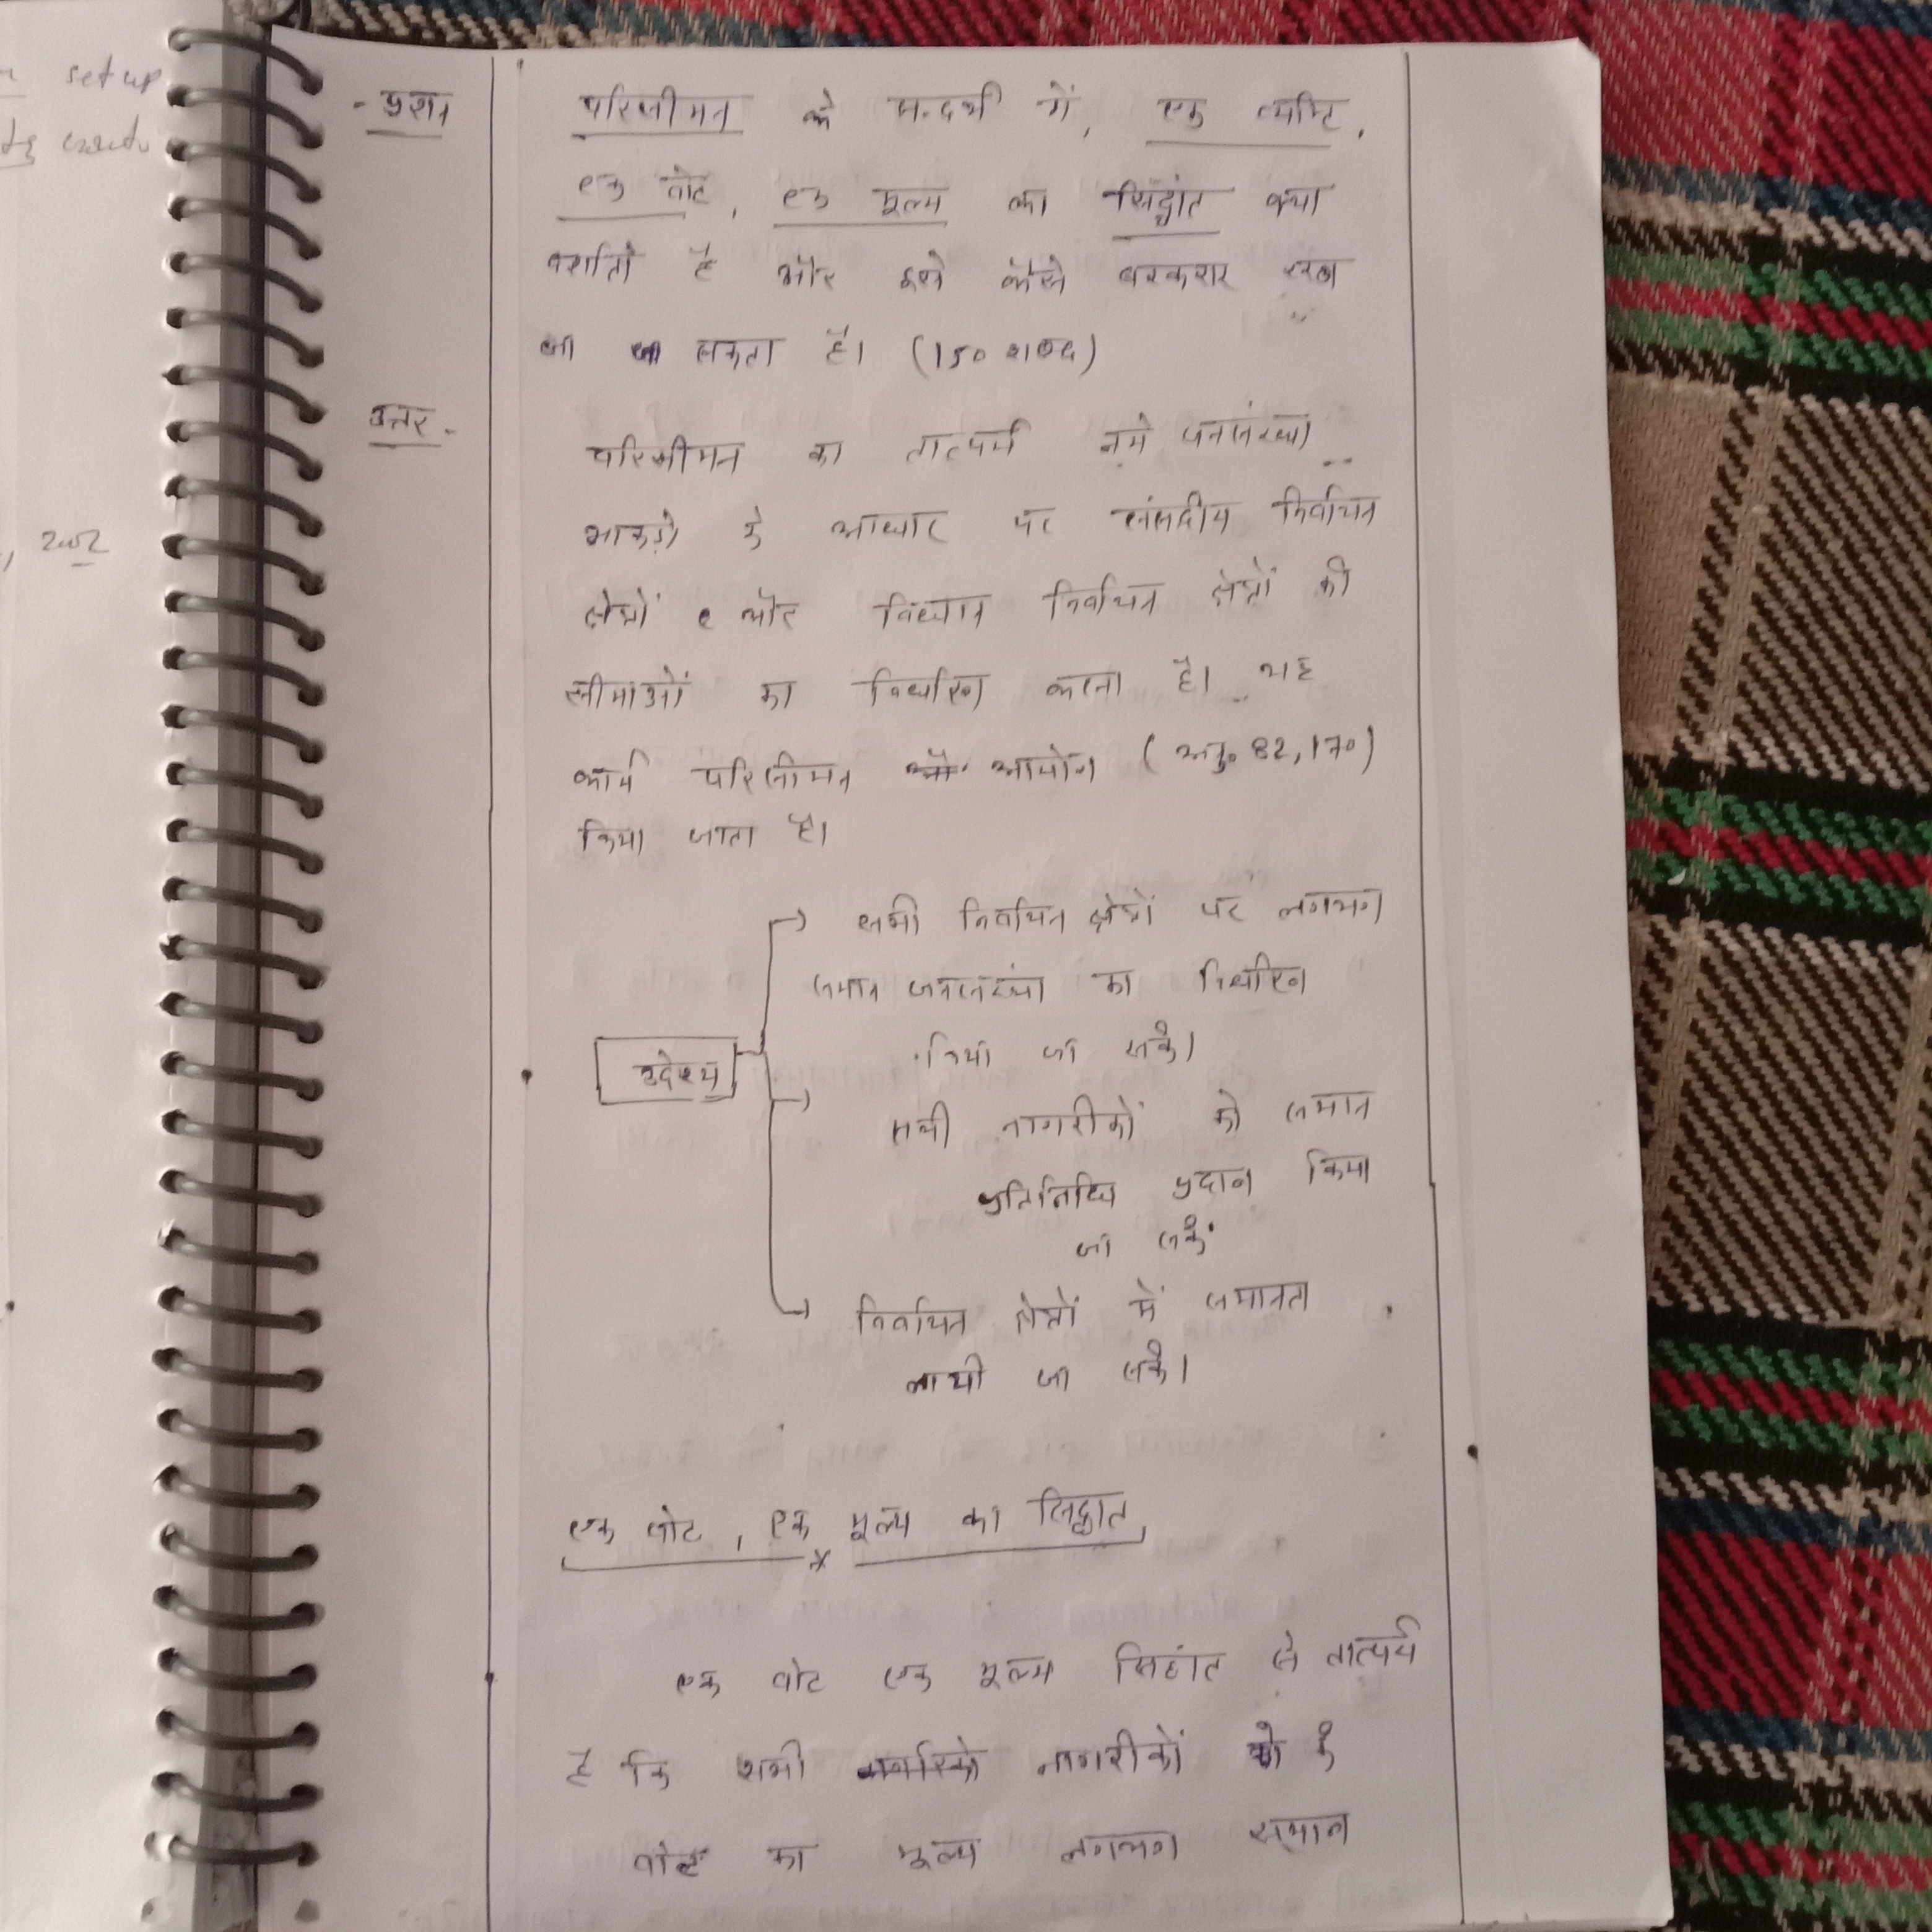 setup
, 2002
- प्रश्न परिसीमन के सन्दर्भ में, एक व्यक्ति,
एक वोट, एक मूल्य का सिद्धांत क्या
दर्शाता है और इसे कैसे बरकरार रखा
जा सकता है। (150 शब्द)
उत्तर - परिसीमन का तात्पर्य नये जनसंख्या
आकड़ो के आधार पर संसदीय निर्वाचन
क्षेत्रों और विधान निर्वाचन क्षेत्रों की
सीमाओं का निर्धारण करना है। यह
कार्य परिसीमन आयोग (अनु० 82, 170)
किया जाता है।
उदेश्य
→ सभी निर्वाचन क्षेत्रों पर लगभग
समान जनसंख्या का निर्धारण
किया जा सके।
→ सभी नागरीकों को समान
प्रतिनिधि प्रदान किया
जा सके
→ निर्वाचन क्षेत्रों में समानता
लायी जा सके।
एक वोट, एक मूल्य का सिद्धांत
एक वोट एक मूल्य सिद्धांत से तात्पर्य
है कि सभी नागरीकों के
वोट का मूल्य लगभग समान